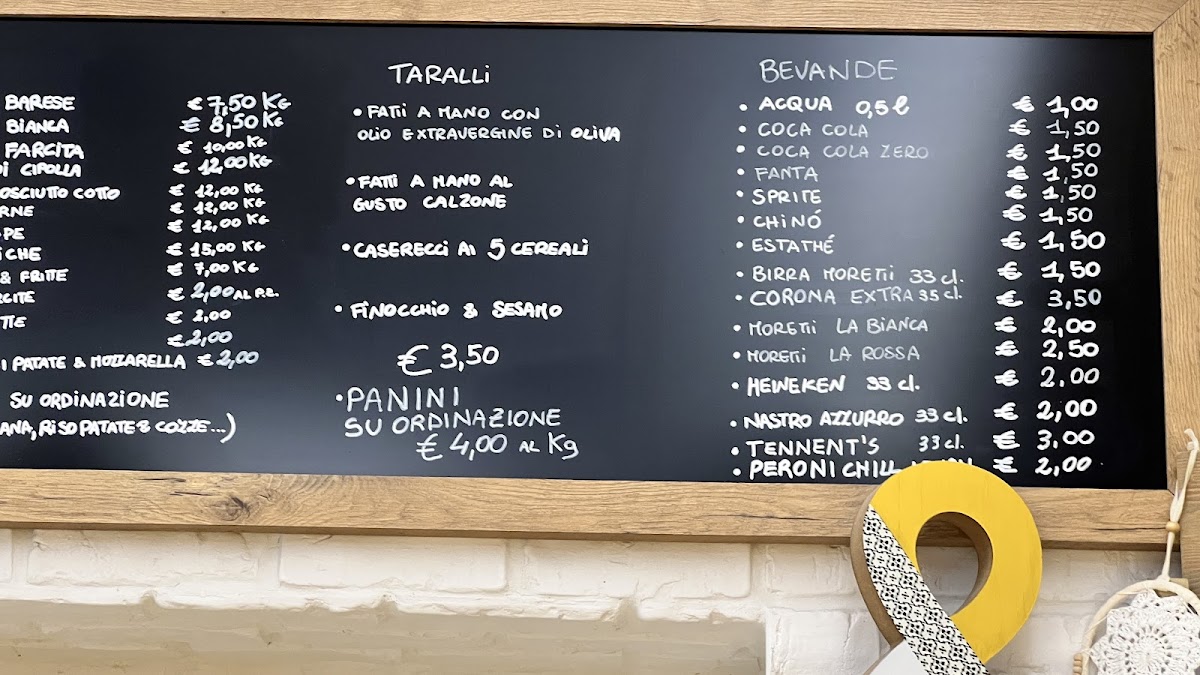 BARESE € 7,50 KG
BIANCA € 8,50 KG
FARCITA € 10,00 KG
DI CIPOLLA € 12,00 KG
OSCIUTTO COTTO € 12,00 KG
RNE € 12,00 KG
PE € 12,00 KG
ICHE € 15,00 KG
& FRITTE € 7,00 KG
RCITE € 2,00 AL PZ.
TTE € 2,00
€ 2,00
I PATATE & MOZZARELLA € 2,00
SU ORDINAZIONE
ANA, RISO PATATE & COZZE...)
TARALLI
• FATTI A MANO CON
OLIO EXTRAVERGINE DI OLIVA
• FATTI A MANO AL
GUSTO CALZONE
• CASERECCI AI 5 CEREALI
• FINOCCHIO & SESAMO
€ 3,50
• PANINI
SU ORDINAZIONE
€ 4,00 AL Kg
BEVANDE
• ACQUA 0,5 l € 1,00
• COCA COLA € 1,50
• COCA COLA ZERO € 1,50
• FANTA € 1,50
• SPRITE € 1,50
• CHINÓ € 1,50
• ESTATHÉ € 1,50
• BIRRA MORETTI 33 cl. € 1,50
• CORONA EXTRA 35 cl. € 3,50
• MORETTI LA BIANCA € 2,00
• MORETTI LA ROSSA € 2,50
• HEINEKEN 33 cl. € 2.00
• NASTRO AZZURRO 33 cl. € 2,00
• TENNENT'S 33 cl. € 3,00
• PERONI CHILL € 2,00